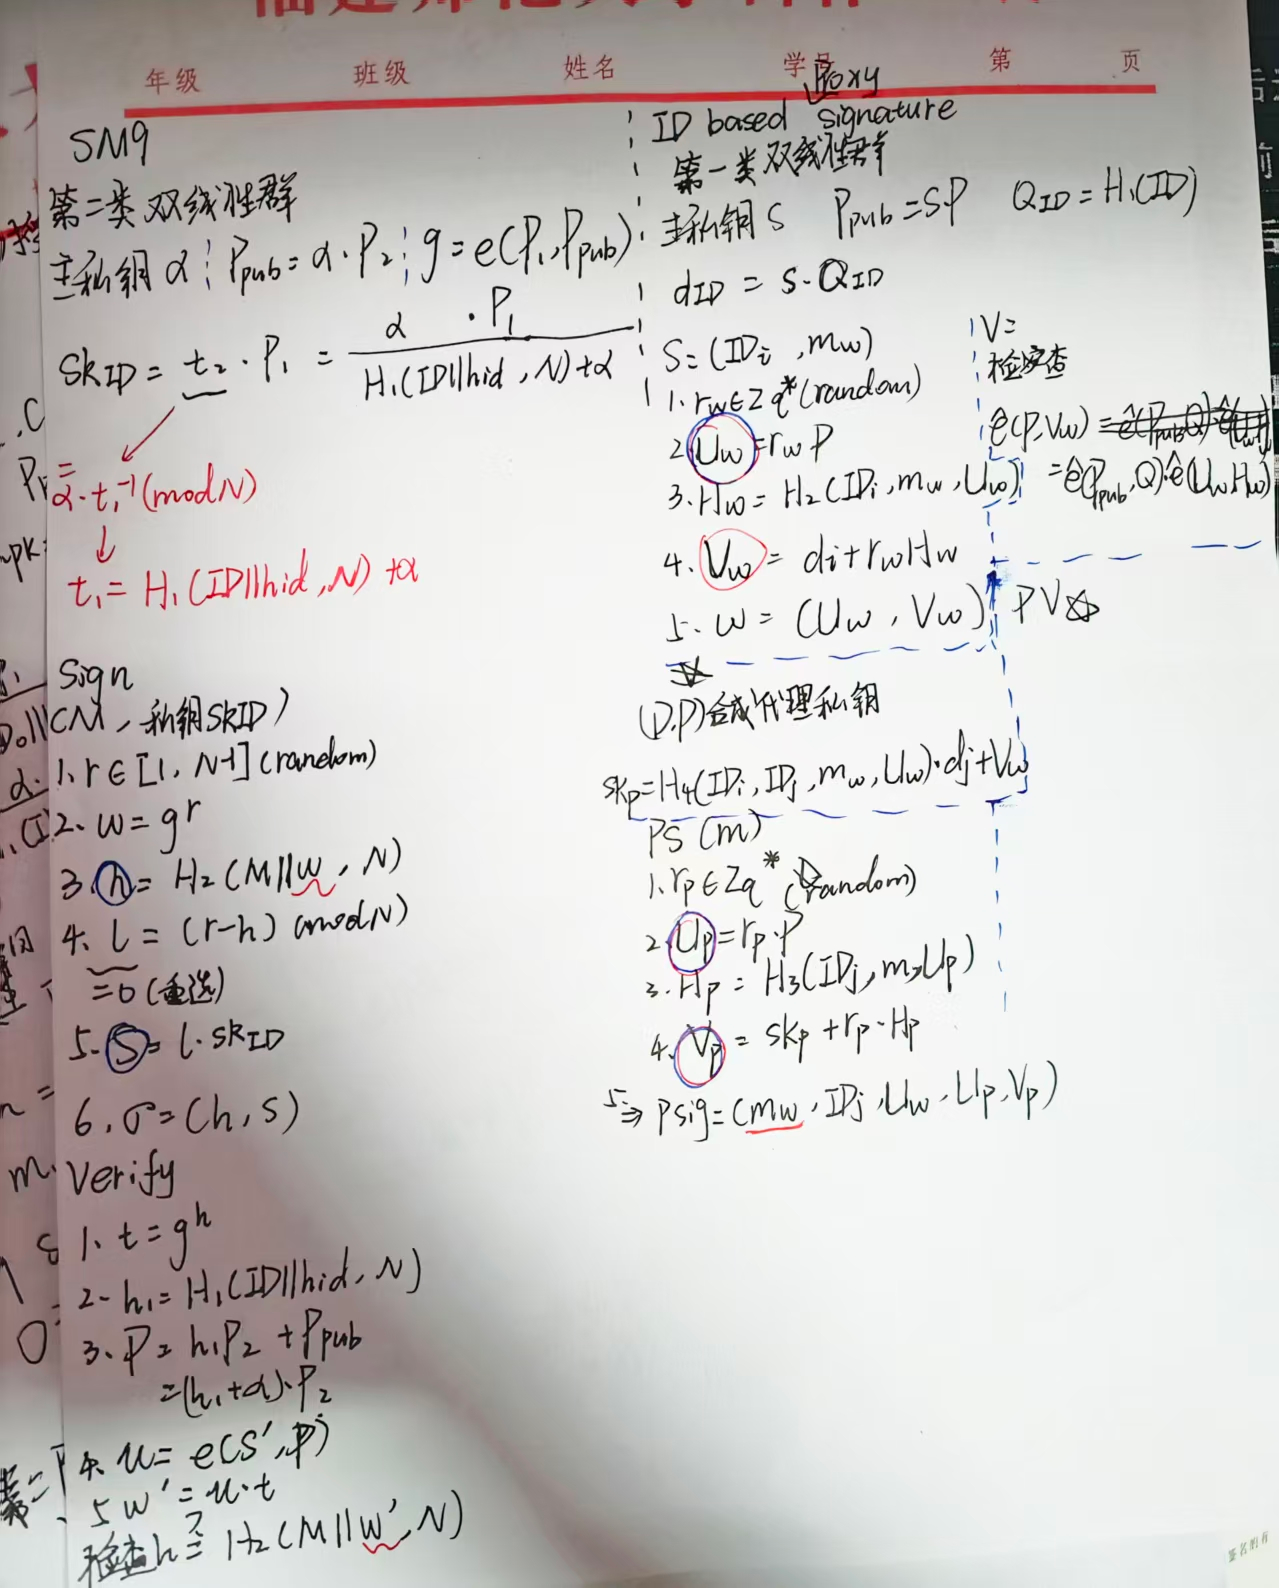 年级 班级 姓名 学号 第 页
SM9
第二类双线性群
主私钥 α ¦ Ppub = α·P₂ ¦ g = e(P₁, Ppub)
SkID = t₂ · P₁ = α · P₁ / H₁(ID||hid, N)+α
= α·t₁⁻¹ (mod N)
t₁ = H₁(ID||hid, N) + α
Sign
(M, 私钥SkID)
1. r ∈ [1, N-1] (random)
2. w = gʳ
3. h = H₂(M||w, N)
4. l = (r-h) (mod N)
=0 (重选)
5. S = l·SkID
6. σ = (h, s)
Verify
1. t = gʰ
2. h₁ = H₁(ID||hid, N)
3. P = h₁P₂ + Ppub
=(h₁+α)·P₂
4. u = e(S', P)
5 w' = u·t
检查h ≟ H₂(M||w', N)
Proxy
ID based signature
第一类双线性群
主私钥 S Ppub = SP QID = H₁(ID)
dID = s·QID
S = (IDi, mw)
1. rw ∈ Zq* (random)
2. Uw = rw P
3. Hw = H₂(IDi, mw, Uw)
4. Vw = di + rwHw
5. w = (Uw, Vw)
V=
检查
ê(P, Vw)
= ê(Ppub, Q)·ê(Uw, Hw)
PV
(D.P)合成代理私钥
skp = H₄(IDi, IDj, mw, Uw)·dj + Vw
PS (m)
1. rp ∈ Zq* (random)
2. Up = rp·P
3. Hp = H₃(IDj, m, Up)
4. Vp = skp + rp·Hp
5. ⇒ psig = (mw, IDj, Uw, Up, Vp)
签名的有